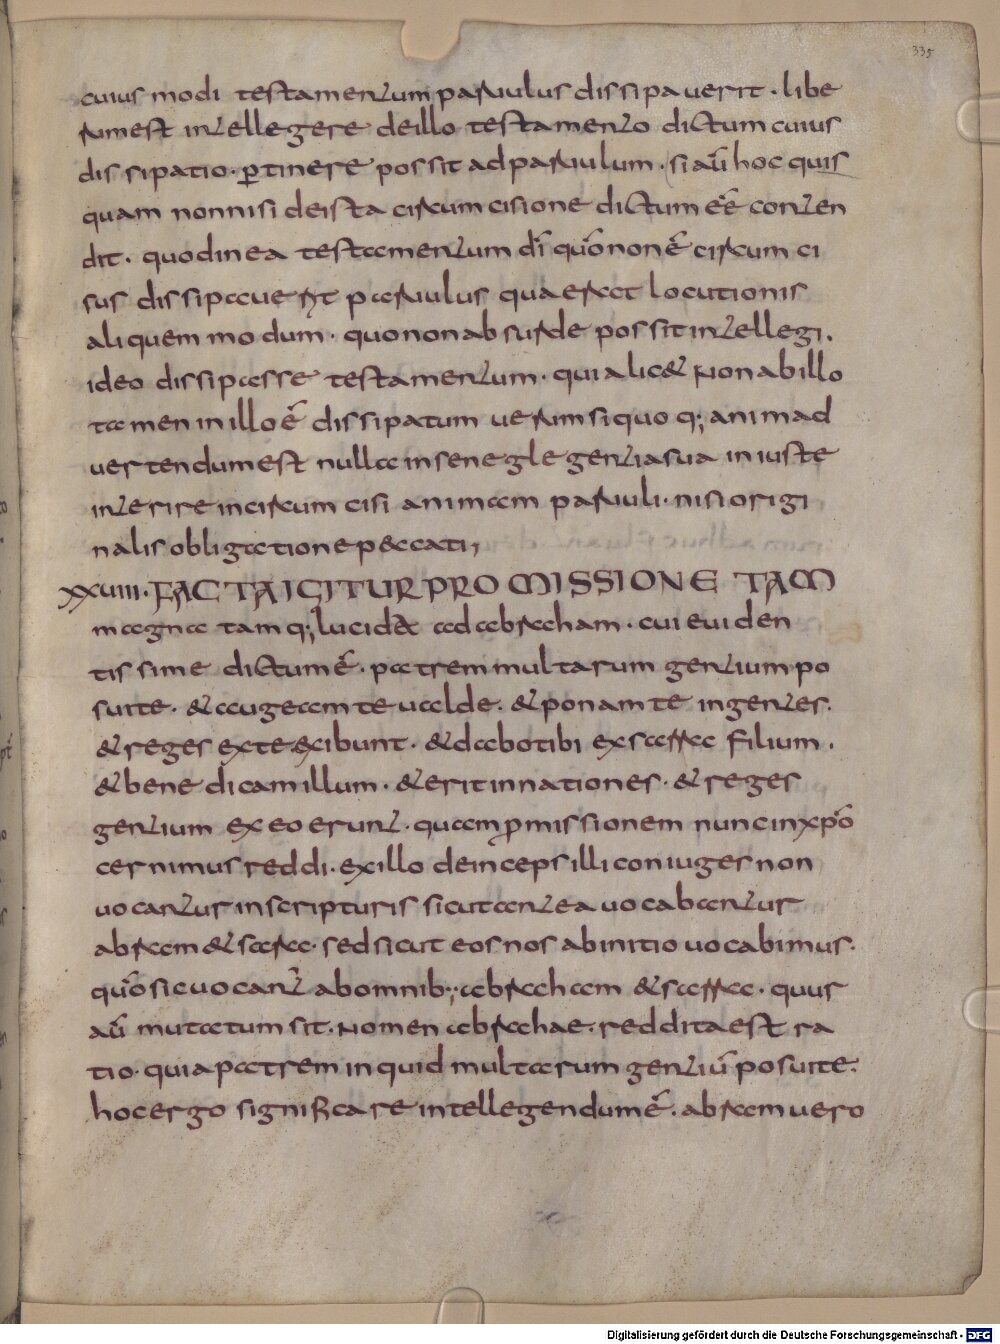 335
cuius modi testamentum paruulus dissipauerit · libe
rum est intellegere de illo testamento dictum cuius
dissipatio · ꝑtinere possit ad paruulum · si aū hoc quis
quam nonnisi de ista circumcisione dictum eē̄ conten
dit · quod in ea testamentum dī quō non ē̄ circumci
sus dissipauerit paruulus quaerat locutionis
aliquem modum · quo non absurde possit intellegi ·
ideo dissipasse testamentum · quia licet non ab illo
tamen in illo ē̄ dissipatum uerum si quoq; animad
uertendum est nulla in se neglegentia sua iniuste
interire incircumcisi animam paruuli · nisi origi
nalis obligatione peccati;
XXVIII · FACTA IGITUR PROMISSIONE TAM
magna tamq; lucida ad abraham · cui euiden
tissime dictum ē̄ · patrem multarum gentium po
sui te · & augeam te ualde · & ponam te in gentes ·
& reges ex te exibunt · & dabo tibi ex sarra filium ·
& benedicam illum · & erit in nationes · & reges
gentium ex eo erunt · quam ꝓmissionem nunc in xpō
cernimus reddi · ex illo deinceps illi coniuges non
uocantur in scripturis sicut antea uocabantur
abram & sara · sed sicut eos nos ab initio uocabimus ·
quō sic uocant̄ ab omnib; abraham & sarra · quur
aū mutatum sit · nomen abrahae · reddita est ra
tio · quia patrem inquid multarum gentiū posui te ·
hoc ergo significare intellegendum ē̄ · abram uero
Digitalisierung gefördert durch die Deutsche Forschungsgemeinschaft - DFG